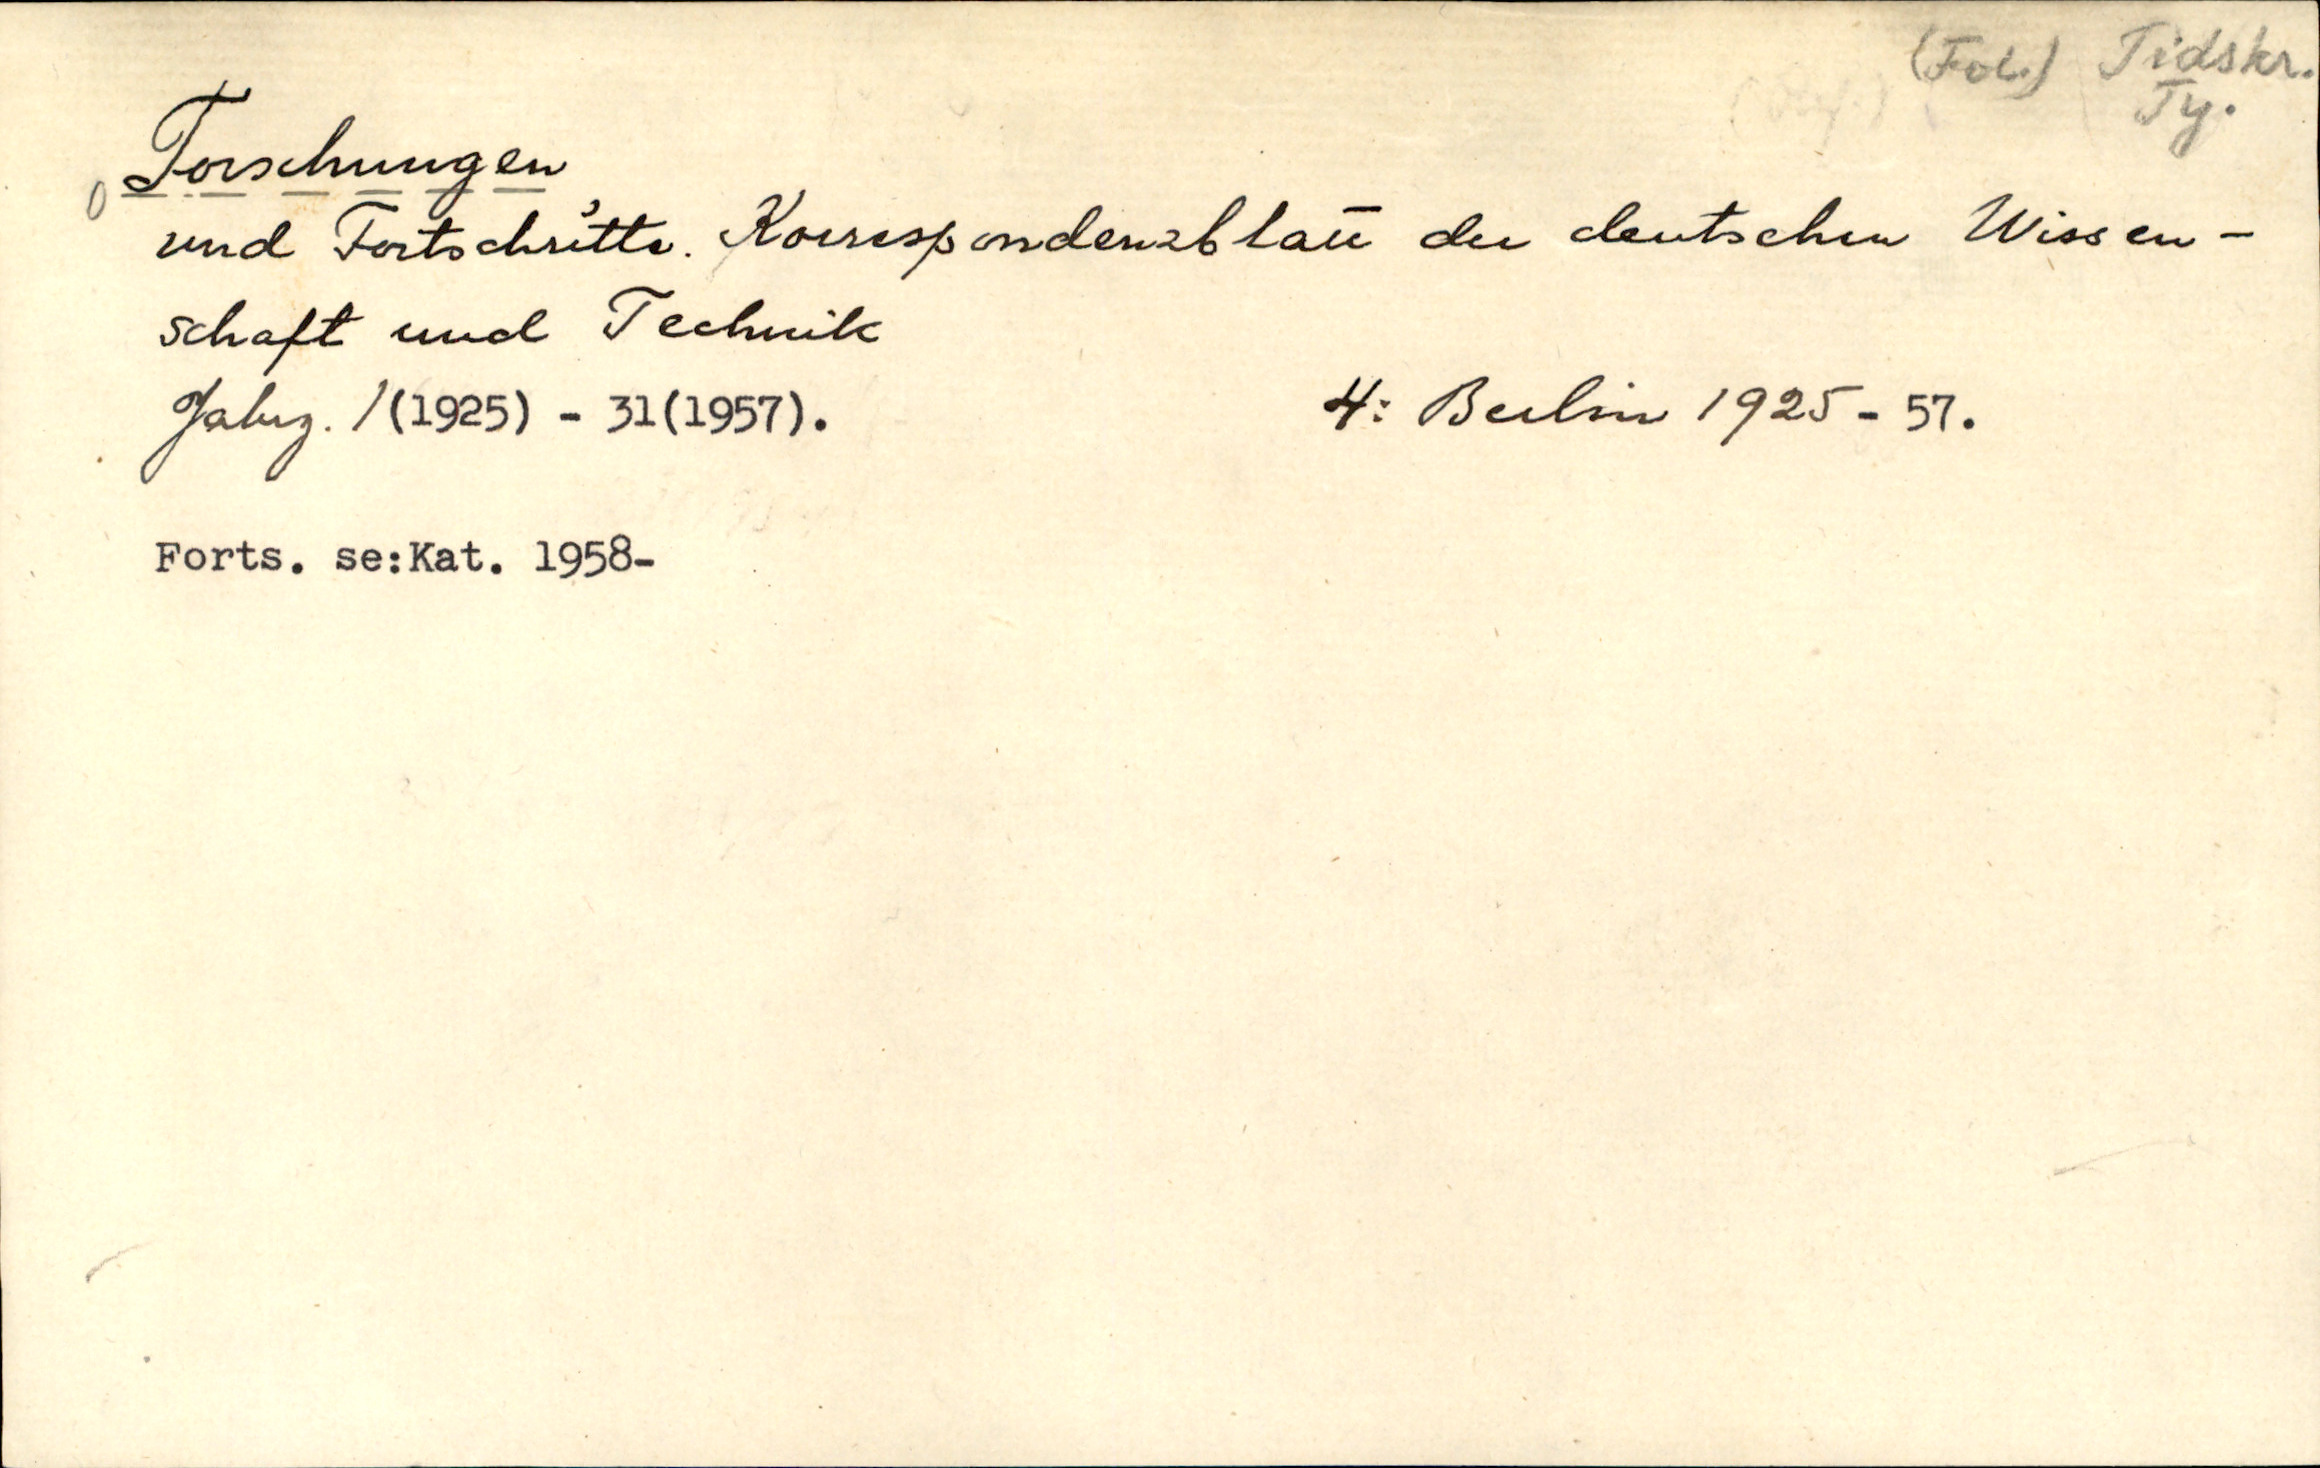 (Fol.) Tidskr.
Ty.
Forschungen
und Fortschritte. Korrespondenzblatt der deutschen Wissen-
schaft und Technik
Jahrg. 1(1925) - 31(1957). 4: Berlin 1925-57.
Forts. se:Kat. 1958-